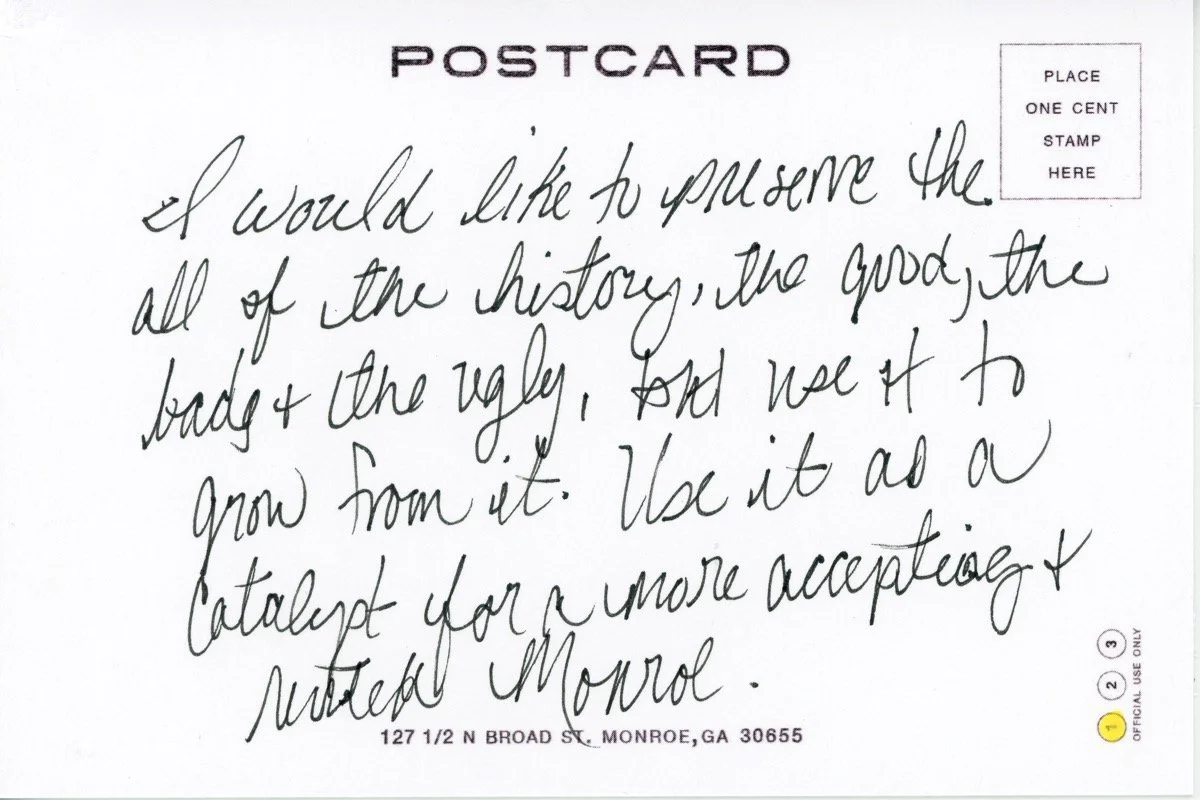 POSTCARD
PLACE
ONE CENT
STAMP
HERE
I would like to preserve the
all of the history, the good, the
bad, + the ugly, but use it to
grow from it. Use it as a
catalyst for a more accepting +
united Monroe.
127 1/2 N BROAD ST. MONROE, GA 30655
1 2 3
OFFICIAL USE ONLY